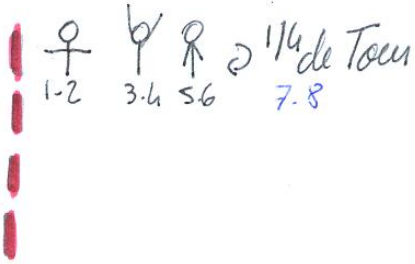 1/4 de Tour
1-2 3.4 5.6 7.8